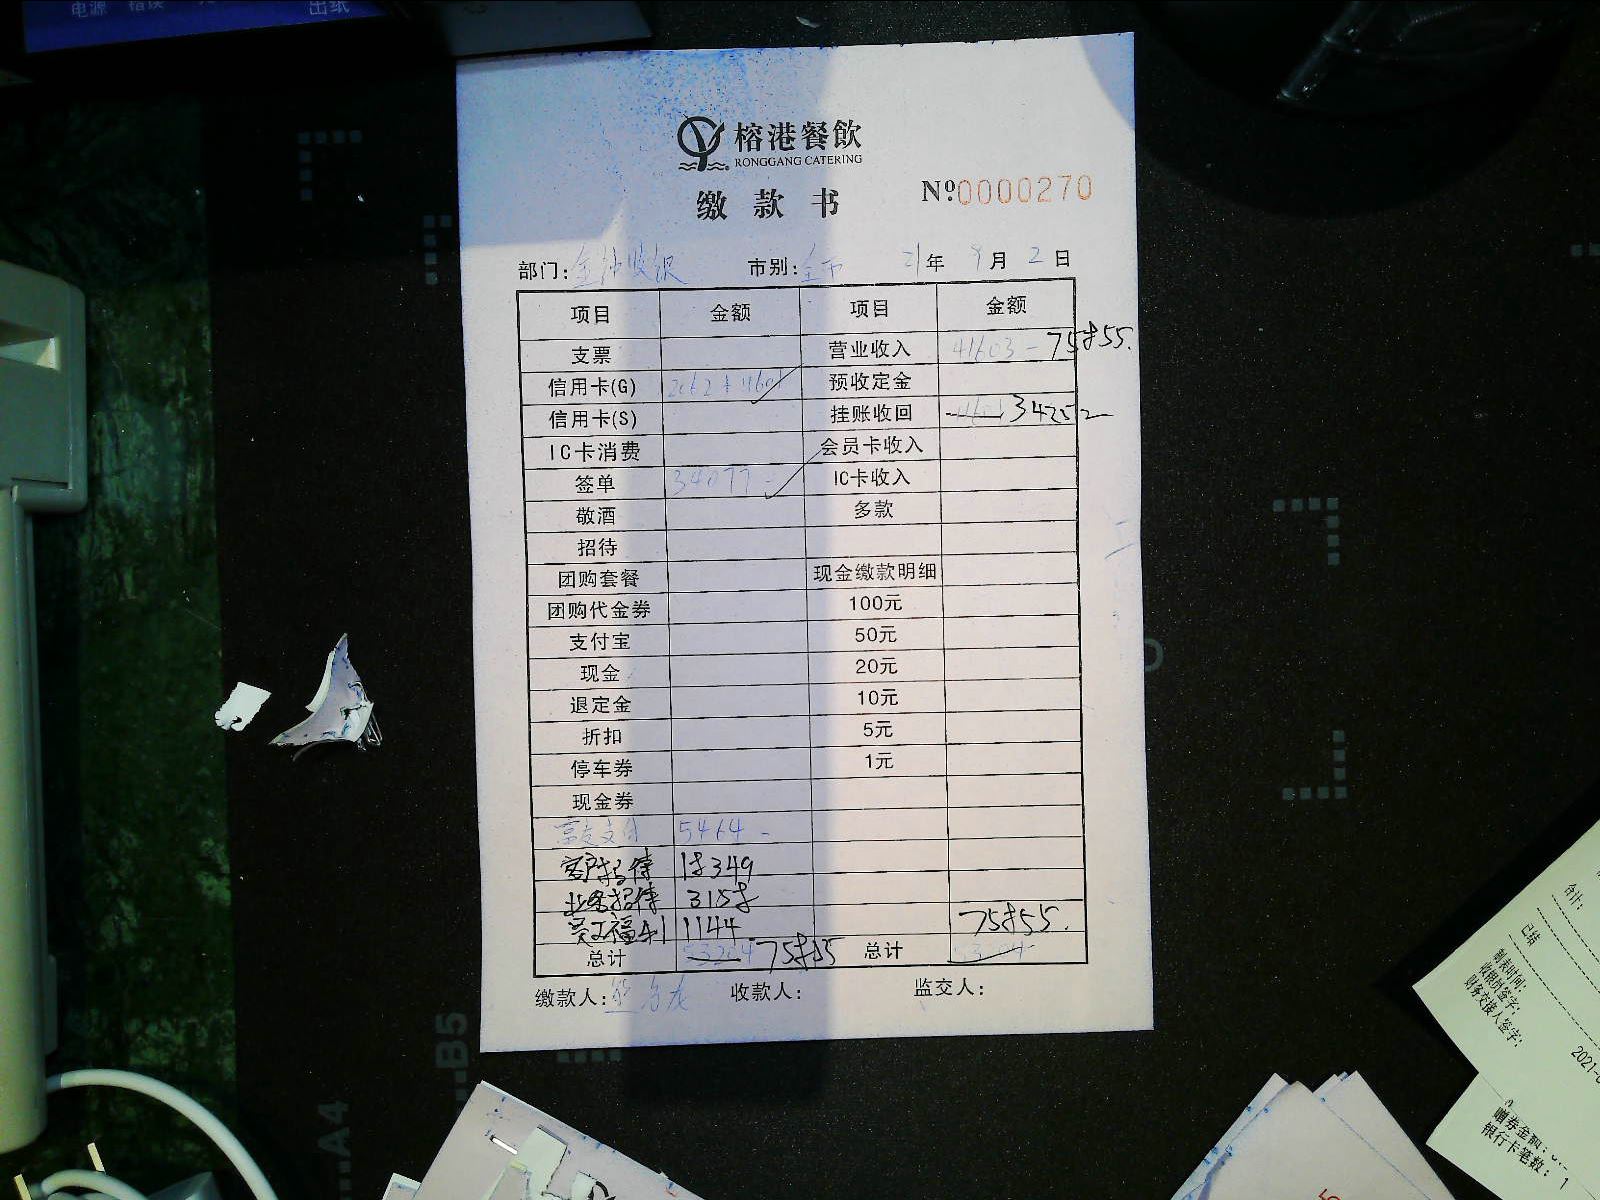 电源
出纸
榕港餐飲
RONGGANG CATERING
缴款书
Nº0000270
部门: 市别: 21年 9月 2日
项目 金额 项目 金额
支票 营业收入 41603- 75855.
信用卡(G) 预收定金
信用卡(S) 挂账收回 34252
IC卡消费 会员卡收入
签单 34077- IC卡收入
敬酒 多款
招待
团购套餐 现金缴款明细
团购代金券 100元
支付宝 50元
现金 20元
退定金 10元
折扣 5元
停车券 1元
现金券
富友支付 5464-
客户招待 18349
业务招待 3158
员工福利 1144 75855.
总计 53204 75855 总计 53204
缴款人: 收款人: 监交人:
B5
A4
合计:
已结
制表时间:
收银员签字:
财务交接人签字:
2021-
赠券金额:0.
银行卡笔数: 1